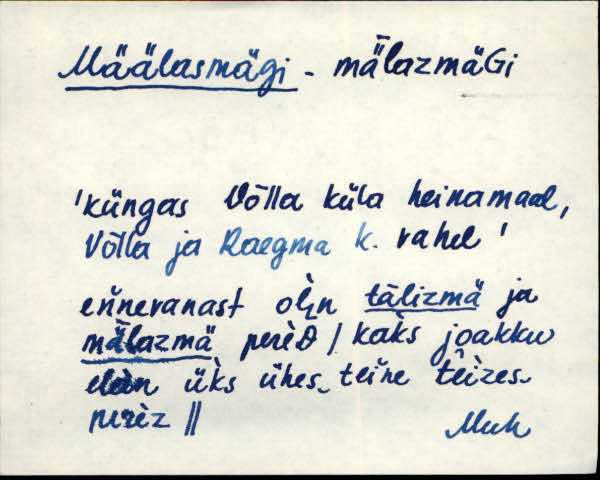 Määlasmägi - mälazmäGi
'küngas Võlla küla heinamaal,
Võlla ja Raegma k. vahel'
ennevanast olìn tälizmä ja
mälazmä perèD / kaks joakku
elàn üks ühes, teine teizes
perèz ||
Muh